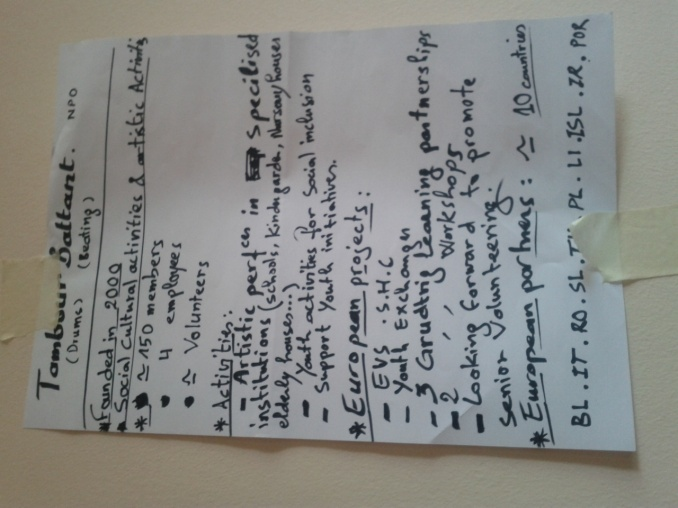 Tambour Battant. NPO
(Drums) (Beating)
* Founded in 2000
* Social Cultural activities & artistic Activity
* ≃ 150 members
• 4 employees
• ≃ Volunteers
* Activities:
- Artistic perfcn in specilised
institutions (schools, Kindergarden, Nursery houses
elderly houses...)
- Youth activities for Social inclusion
- Support Youth initiatives.
* European projects:
- EVS . S.H.C
- Youth Exchange
- 3 Grudtvig Learning partnerships
- 2 , , Workshops
- Looking forward to promote
Senior Volunteering
* European partners: ≃ 10 countries
BL. IT. RO. SL. PL. LI. ISL. IR. POR